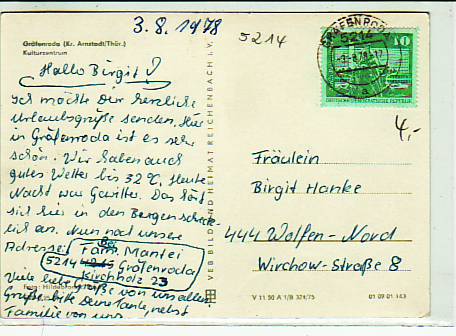 3.8.1978
5214
Gräfenroda (Kr. Arnstadt/Thür.)
Kulturzentrum
Hallo Birgit!
Ich möchte Dir herzliche
Urlaubsgrüße senden. Hier
in Gräfenroda ist es sehr
schön. Wir haben auch
gutes Wetter bis 32°C. Heute
Nacht war Gewitter. Das hört
sich hier in den Bergen schreck-
lich an. Nun noch unsere
Adresse: Bei
Fam. Mantei
5214 Gräfenroda
Kirchholz 23
Viele liebe Grüße von uns allen
Grüße bitte Deine Tante, nebst
Familie von uns
VEB BILD UND HEIMAT REICHENBACH i. V.
GRÄFENRODA
5214
10
DEUTSCHE DEMOKRATISCHE REPUBLIK
4,-
Fräulein
Birgit Hanke
444 Wolfen-Nord
Wirchow-Straße 8
V 11 50 A 1/B 324/75
01 09 01 143